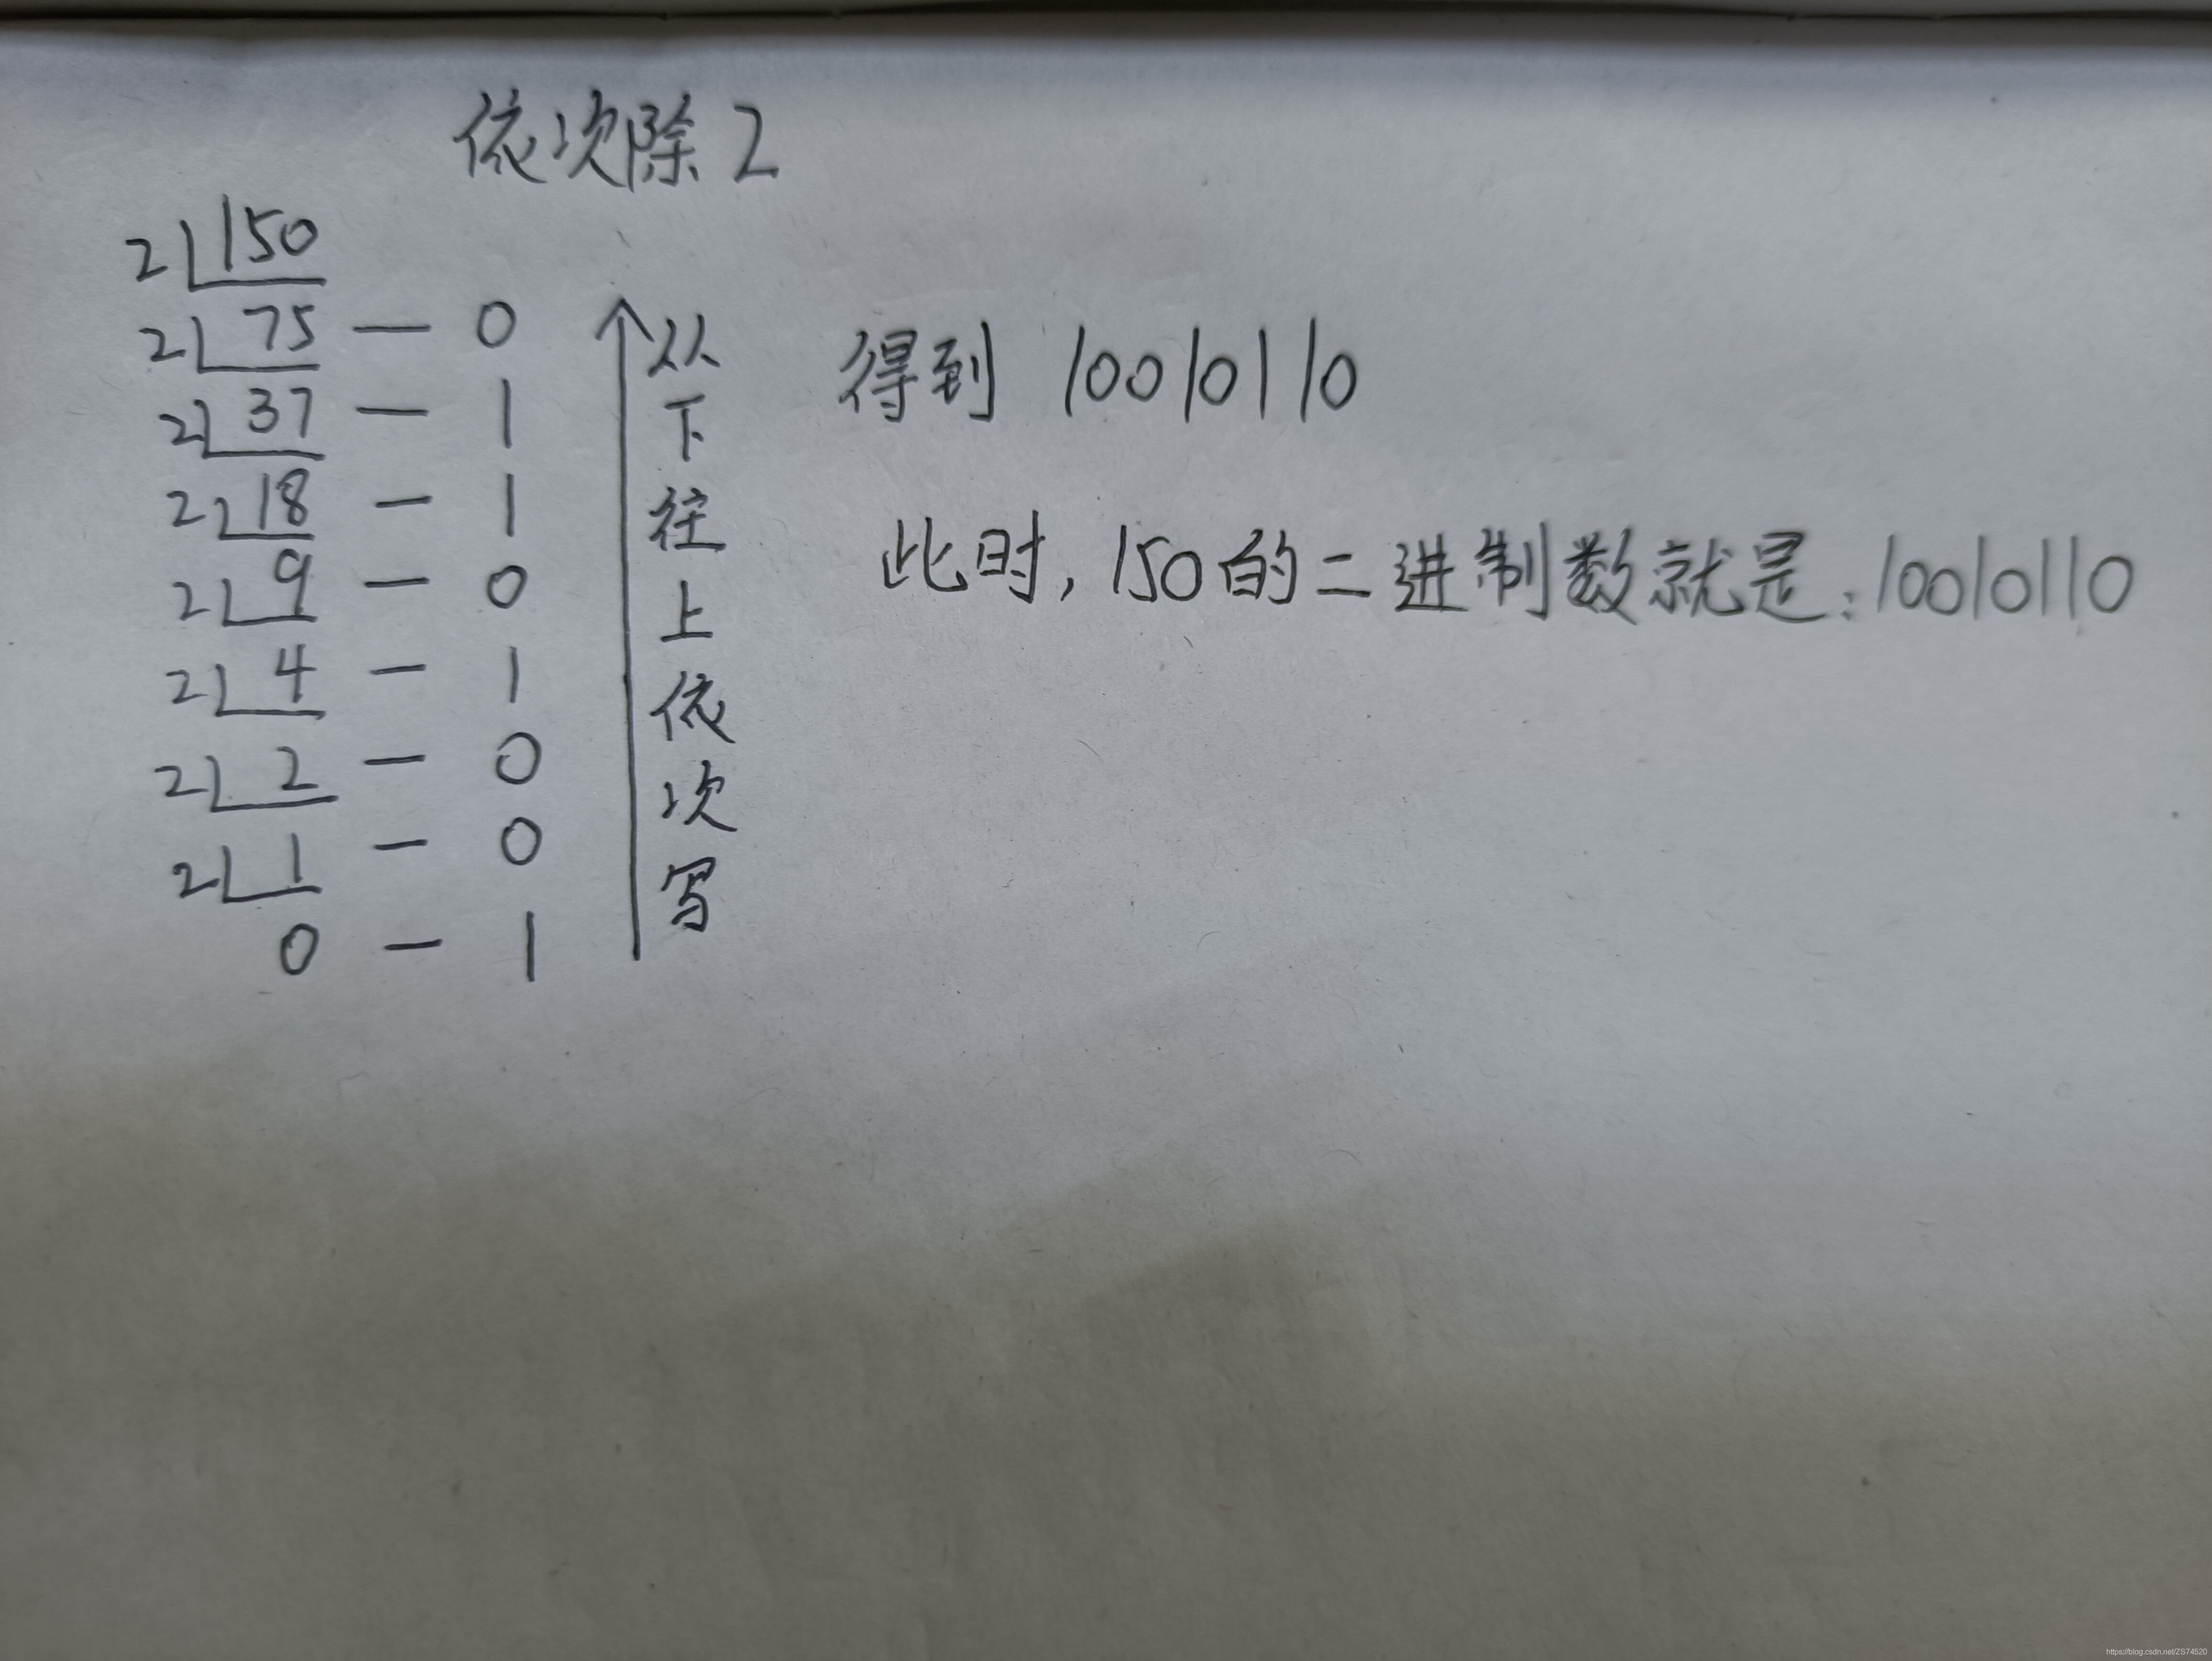 依次除2
2 150
2 75 — 0
2 37 — 1
2 18 — 1
2 9 — 0
2 4 — 1
2 2 — 0
2 1 — 0
0 — 1
从下往上依次写
得到 10010110
此时, 150的二进制数就是: 10010110
https://blog.csdn.net/ZS74520